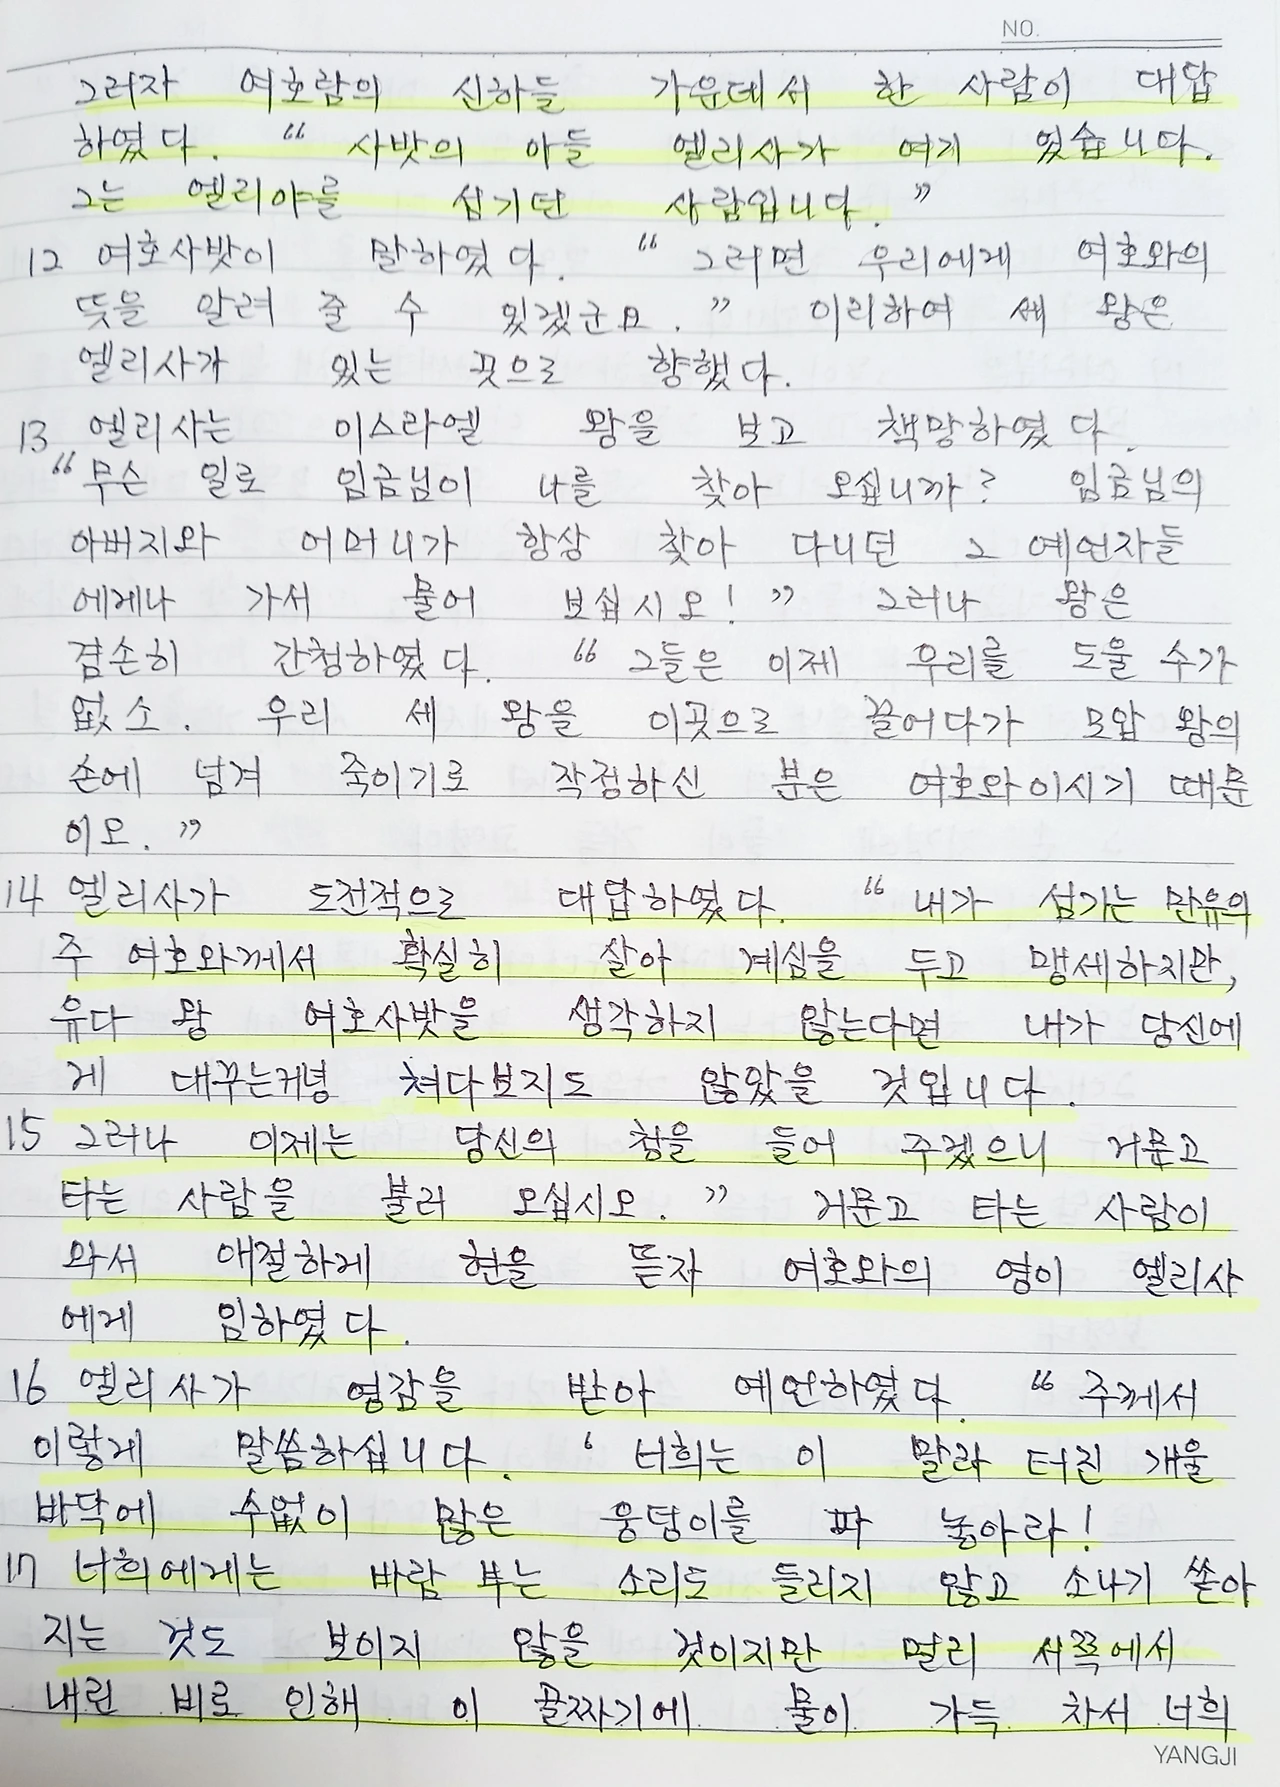 NO.
그러자 여호람의 신하들 가운데서 한 사람이 대답
하였다. “ 사밧의 아들 엘리사가 여기 있습니다.
그는 엘리야를 섬기던 사람입니다. ”
12 여호사밧이 말하였다. “ 그러면 우리에게 여호와의
뜻을 알려 줄 수 있겠군요. ” 이리하여 세 왕은
엘리사가 있는 곳으로 향했다.
13 엘리사는 이스라엘 왕을 보고 책망하였다.
“ 무슨 일로 임금님이 나를 찾아 오십니까? 임금님의
아버지와 어머니가 항상 찾아 다니던 그 예언자들
에게나 가서 물어 보십시오! ” 그러나 왕은
겸손히 간청하였다. “ 그들은 이제 우리를 도울 수가
없소. 우리 세 왕을 이곳으로 끌어다가 모압 왕의
손에 넘겨 죽이기로 작정하신 분은 여호와이시기 때문
이오. ”
14 엘리사가 도전적으로 대답하였다. “ 내가 섬기는 만유의
주 여호와께서 확실히 살아 계심을 두고 맹세하지만,
유다 왕 여호사밧을 생각하지 않는다면 내가 당신에
게 대꾸는커녕 쳐다보지도 않았을 것입니다.
15 그러나 이제는 당신의 청을 들어 주겠으니 거문고
타는 사람을 불러 오십시오. ” 거문고 타는 사람이
와서 애절하게 현을 뜯자 여호와의 영이 엘리사
에게 임하였다.
16 엘리사가 영감을 받아 예언하였다. “ 주께서
이렇게 말씀하십니다. ‘ 너희는 이 말라 터진 개울
바닥에 수없이 많은 웅덩이를 파 놓아라!
17 너희에게는 바람 부는 소리도 들리지 않고 소나기 쏟아
지는 것도 보이지 않을 것이지만 멀리 서쪽에서
내린 비로 인해 이 골짜기에 물이 가득 차서 너희
YANGJI